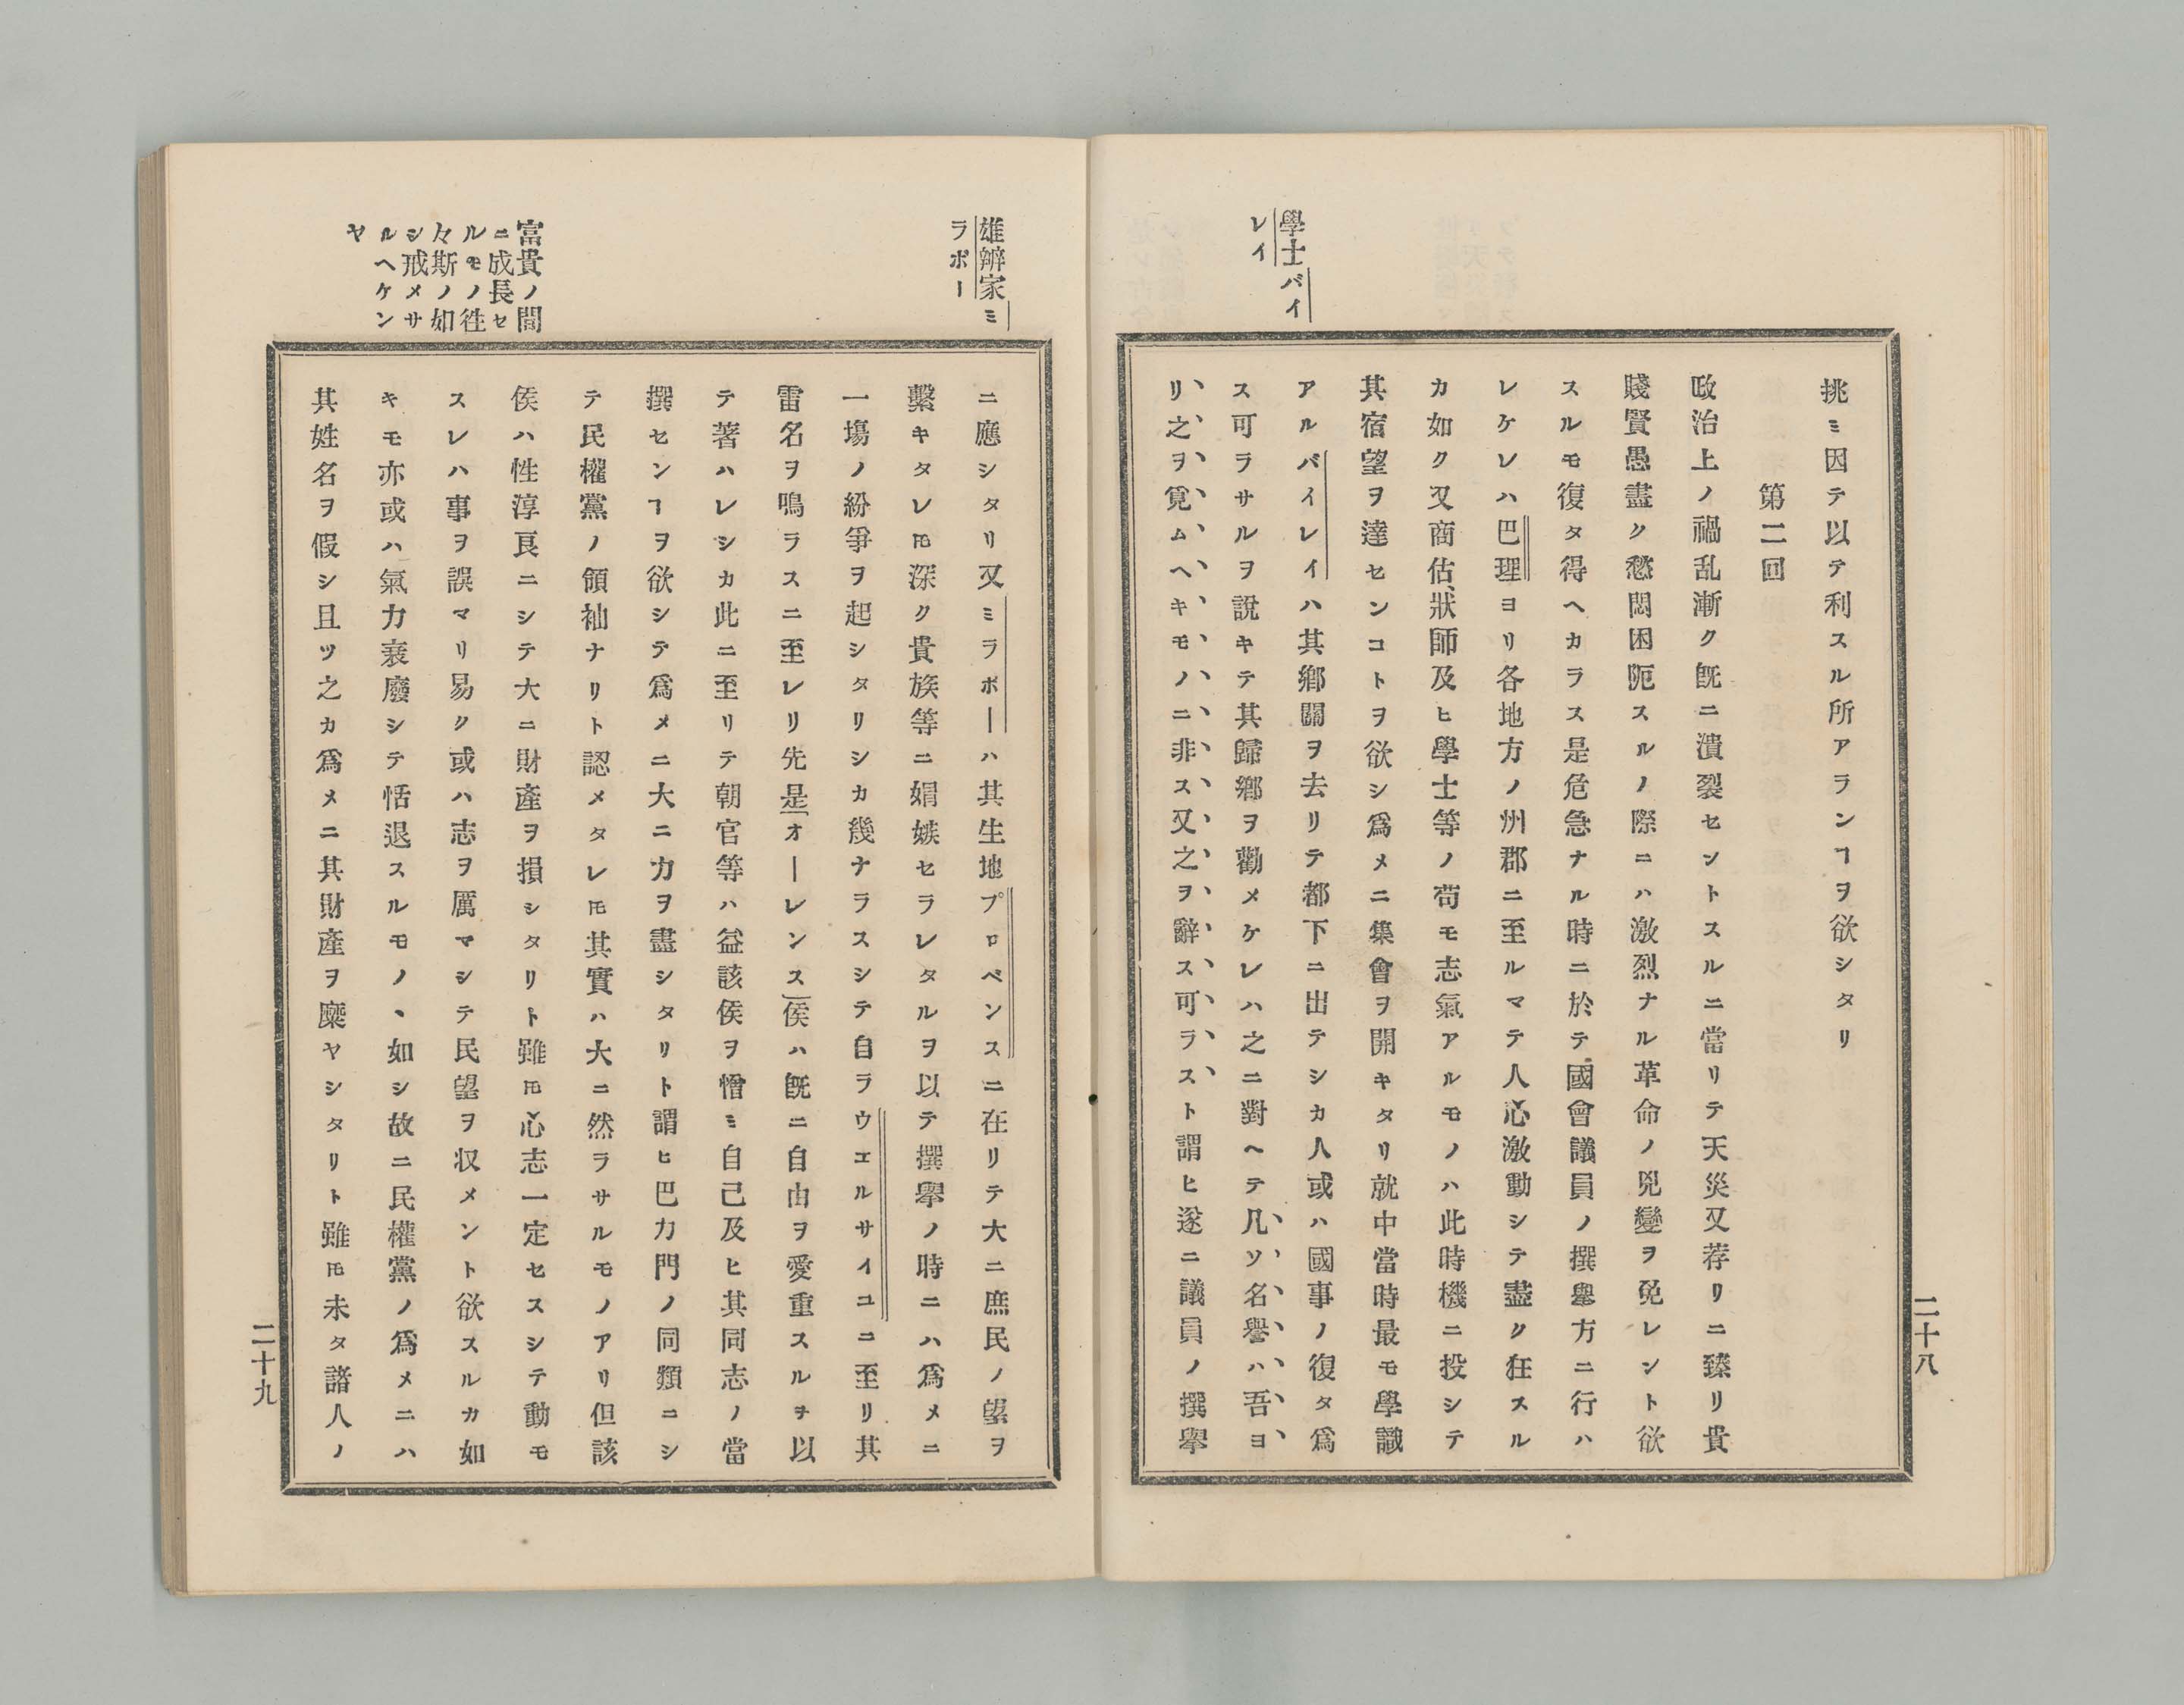 學士バイ
レイ
挑ミ因テ以テ利スル所アランヿヲ欲シタリ
第二回
政治上ノ禍乱漸ク既ニ潰裂セントスルニ當リテ天災又荐リニ臻リ貴
賤賢愚盡ク愁悶困阨スルノ際ニハ激烈ナル革命ノ兇變ヲ免レント欲
スルモ復タ得ヘカラス是危急ナル時ニ於テ國會議員ノ撰擧方ニ行ハ
レケレハ巴理ヨリ各地方ノ州郡ニ至ルマテ人心激動シテ盡ク狂スル
カ如ク又商估、狀師及ヒ學士等ノ苟モ志氣アルモノハ此時機ニ投シテ
其宿望ヲ達センコトヲ欲シ爲メニ集會ヲ開キタリ就中當時最モ學識
アルバイレイハ其鄕關ヲ去リテ都下ニ出テシカ人或ハ國事ノ復タ爲
ス可ラサルヲ說キテ其歸鄕ヲ勸メケレハ之ニ對ヘテ凡ソ名譽ハ吾ヨ
リ之ヲ覓ムヘキモノニ非ス又之ヲ辭ス可ラスト謂ヒ遂ニ議員ノ撰擧
二十八
雄辯家ミ
ラボー
富貴ノ間
ニ成長セ
ルモノ徃
々斯ノ如
シ戒メサ
ルヘケン
ヤ
ニ應シタリ又ミラボーハ其生地プロベンスニ在リテ大ニ庶民ノ望ヲ
繫キタレ𪜈深ク貴族等ニ娼嫉セラレタルヲ以テ撰擧ノ時ニハ爲メニ
一塲ノ紛爭ヲ起シタリシカ幾ナラスシテ自ラウエルサイユニ至リ其
雷名ヲ鳴ラスニ至レリ先是「オーレンス」侯ハ既ニ自由ヲ愛重スルヲ以
テ著ハレシカ此ニ至リテ朝官等ハ益該侯ヲ憎ミ自己及ヒ其同志ノ當
撰センヿヲ欲シテ爲メニ大ニ力ヲ盡シタリト謂ヒ巴力門ノ同類ニシ
テ民權黨ノ領袖ナリト認メタレ𪜈其實ハ大ニ然ラサルモノアリ但該
侯ハ性淳良ニシテ大ニ財產ヲ損シタリト雖𪜈心志一定セスシテ動モ
スレハ事ヲ誤マリ易ク或ハ志ヲ厲マシテ民望ヲ収メント欲スルカ如
キモ亦或ハ氣力衰廢シテ恬退スルモノヽ如シ故ニ民權黨ノ爲メニハ
其姓名ヲ假シ且ツ之カ爲メニ其財產ヲ糜ヤシタリト雖𪜈未タ諸人ノ
二十九